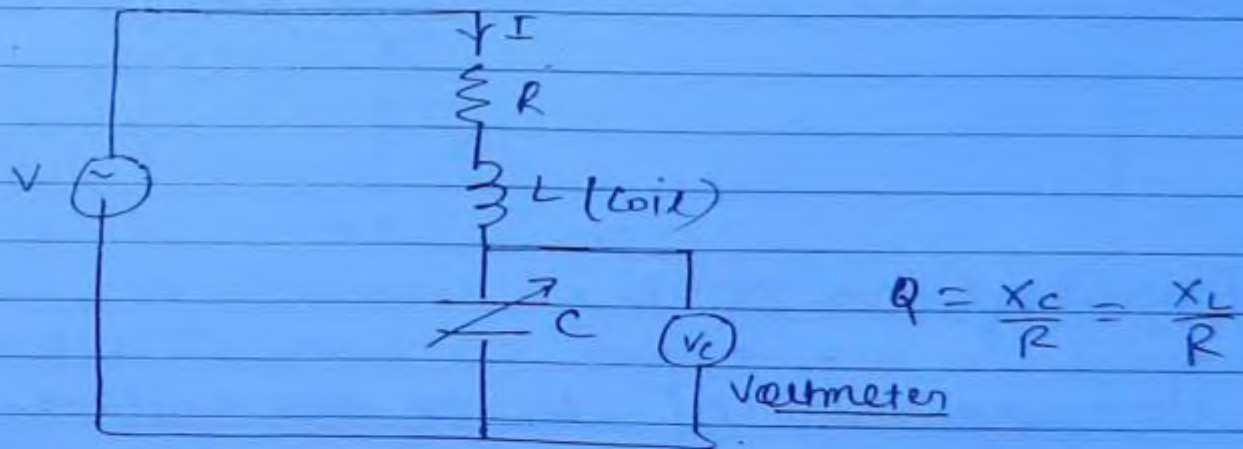 I
R
V
~
L (Coil)
C
Vc
Q = Xc/R = XL/R
Voltmeter